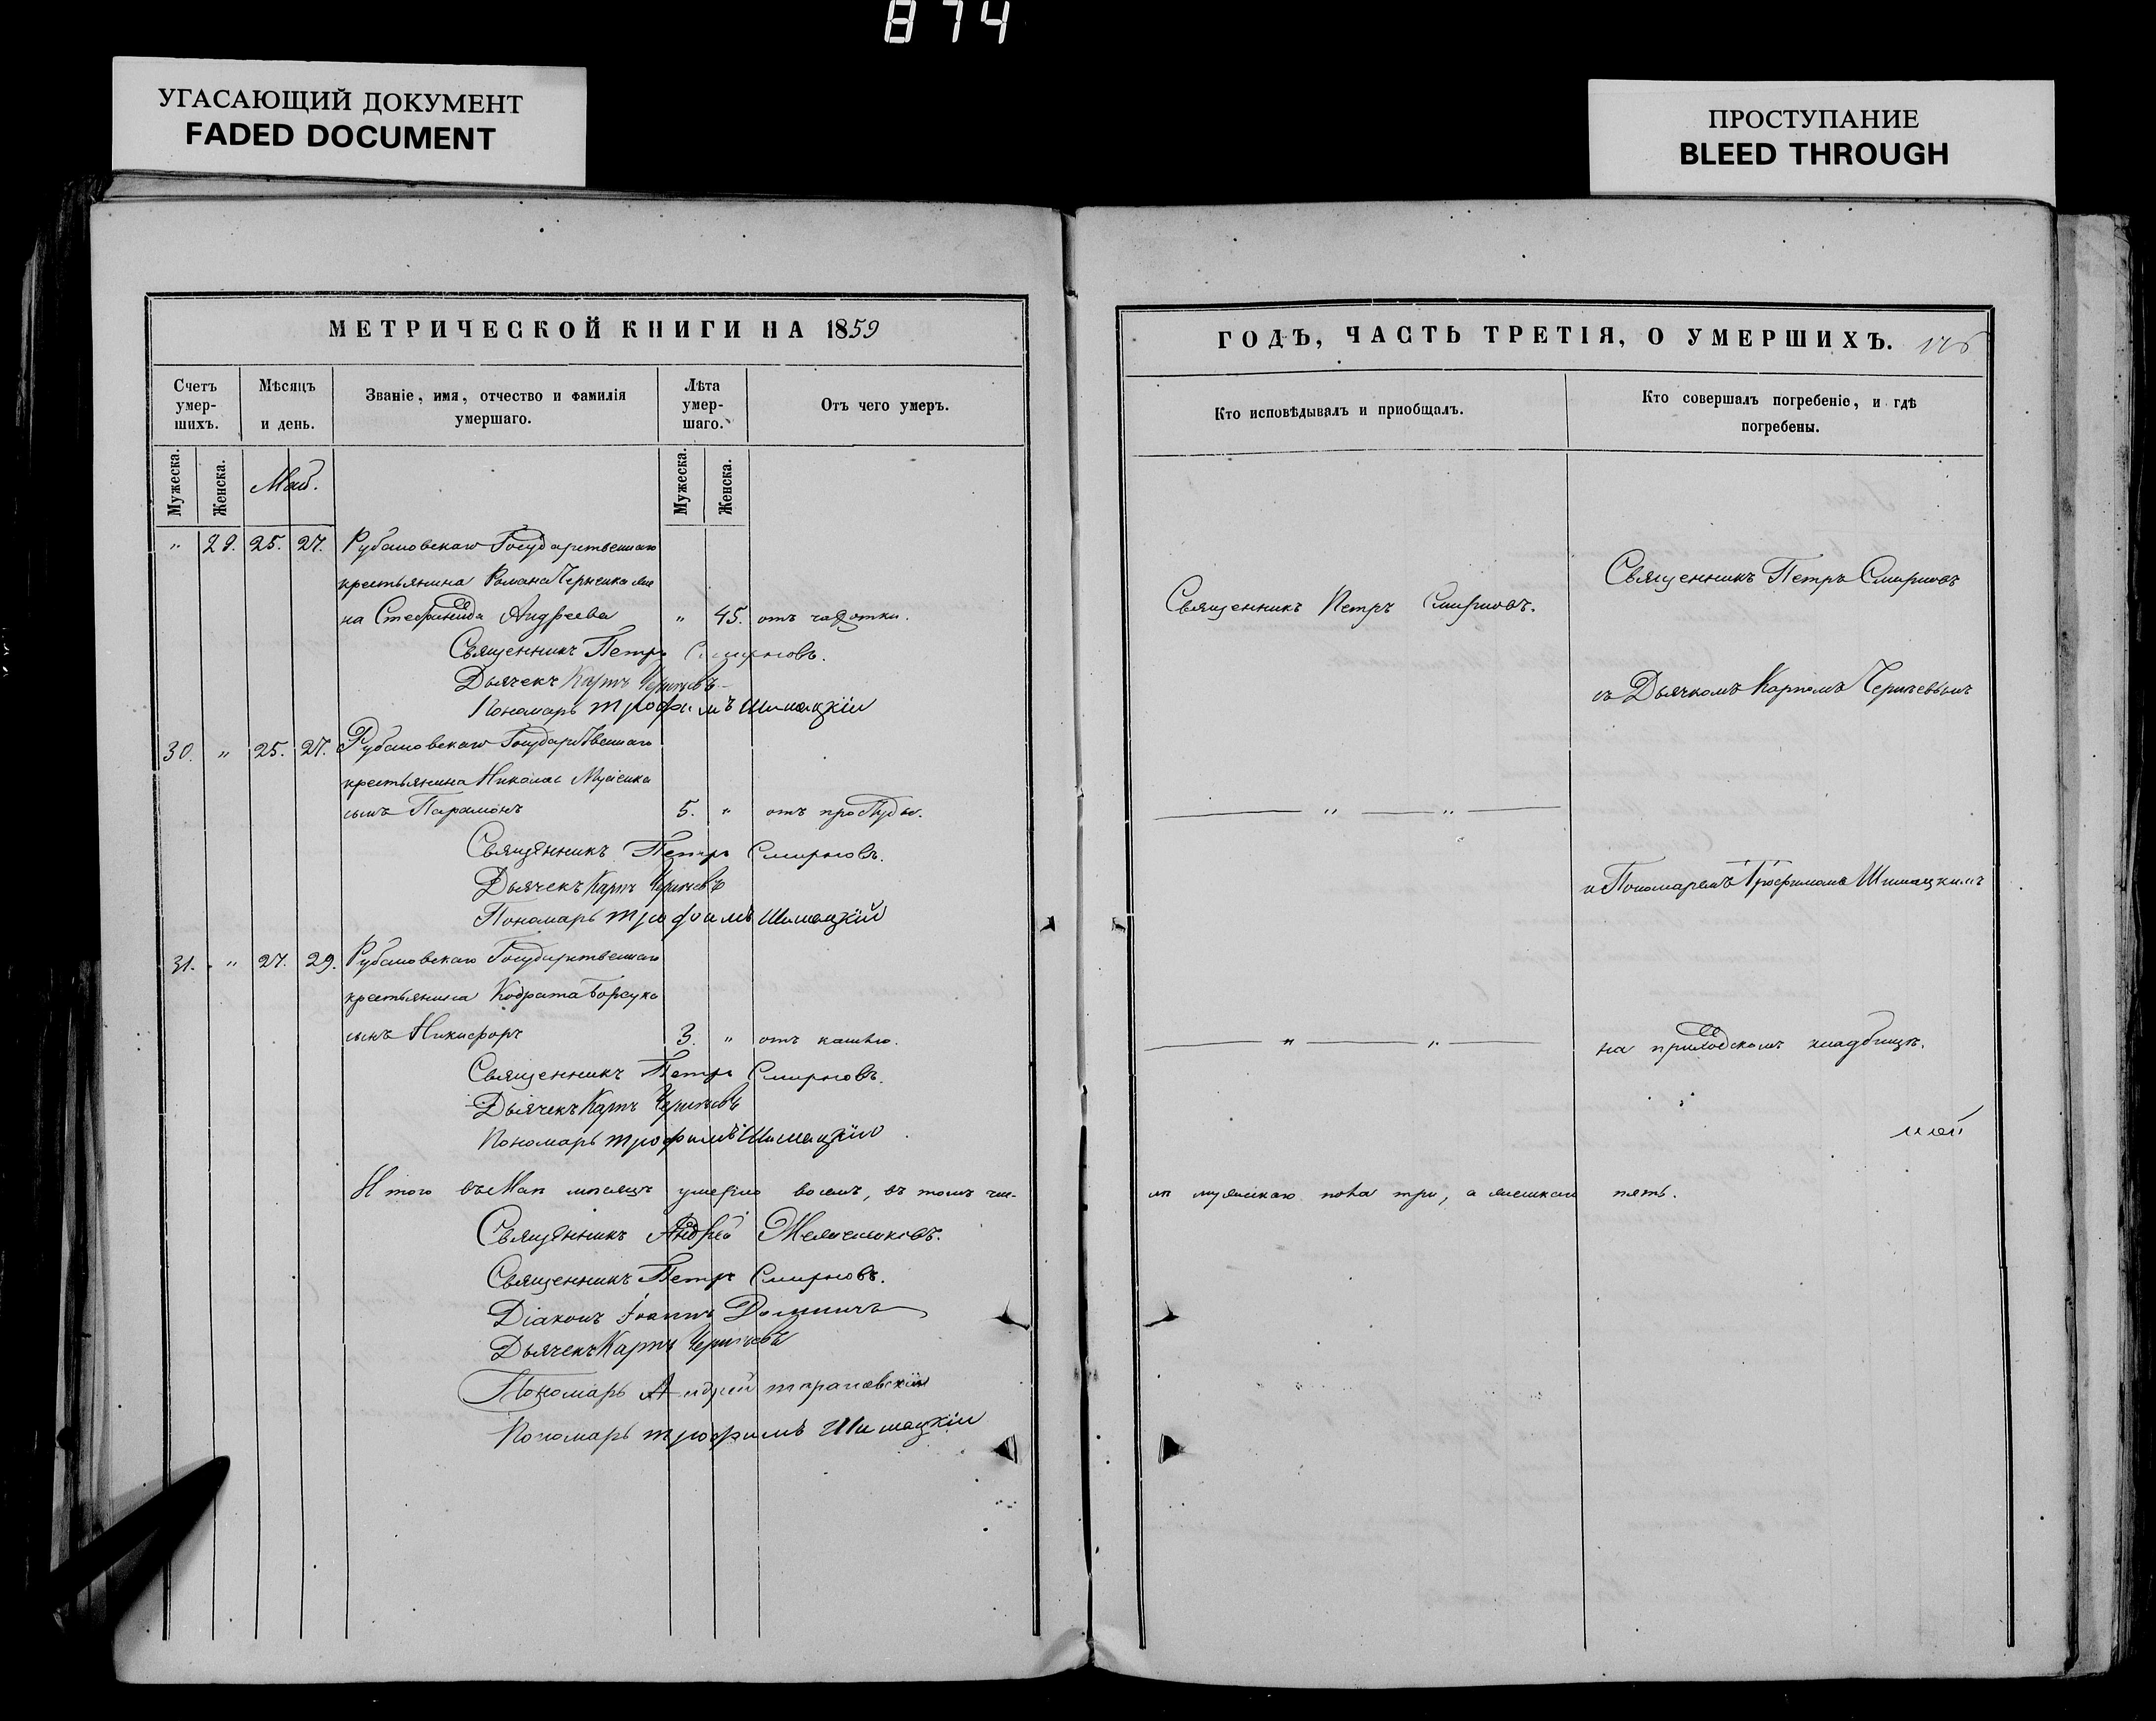 874
УГАСАЮЩИЙ ДОКУМЕНТ
FADED DOCUMENT
ПРОСТУПАНИЕ
BLEED THROUGH
МЕТРИЧЕСКОЙ КНИГИ НА 1859
Счетъ умер-шихъ.
Мѣсяцъ и день.
Званіе, имя, отчество и фамилія умершаго.
Лѣта умер-шаго.
Отъ чего умеръ.
Мужеска.
Женска.
Май.
Мужеска.
Женска.
" 29. 25. 27. Рубановскаго Государственнаго
крестьянина Романа
на Андреева " 45. отъ чахотки.
Священникъ Петръ Смирновъ.
Дьячекъ Карпъ
Пономарь Трофимъ Шимацкій
30. " 25. 27. Рубановскаго Государственнаго
крестьянина Николая
сынъ Парамонъ 5. " отъ простуды.
Священникъ Петръ Смирновъ.
Дьячекъ Карпъ
Пономарь Трофимъ Шимацкій
31. " 27. 29. Рубановскаго Государственнаго
крестьянина Кодрата Борсука
сынъ Никифоръ 3. " отъ кашлю.
Священникъ Петръ Смирновъ.
Дьячекъ Карпъ
Пономарь Трофимъ Шимацкій
Итого въ Маи мѣсяцѣ умерло восемь, въ томъ чис-
Священникъ Андрей
Священникъ Петръ Смирновъ.
Діаконъ Іоаннъ
Дьячекъ Карпъ
Пономарь Андрей
Пономарь Трофимъ Шимацкій
ГОДЪ, ЧАСТЬ ТРЕТІЯ, О УМЕРШИХЪ.
Кто исповѣдывалъ и пріобщалъ.
Кто совершалъ погребеніе, и гдѣ погребены.
Священникъ Петръ Смирновъ.
Священникъ Петръ Смирновъ
съ Дьячкомъ Карпомъ
" "
и Пономаремъ Трофимомъ Шимацкимъ
" "
на приходскомъ кладбищѣ.
лѣ мужескаго пола три, а женскаго пять.